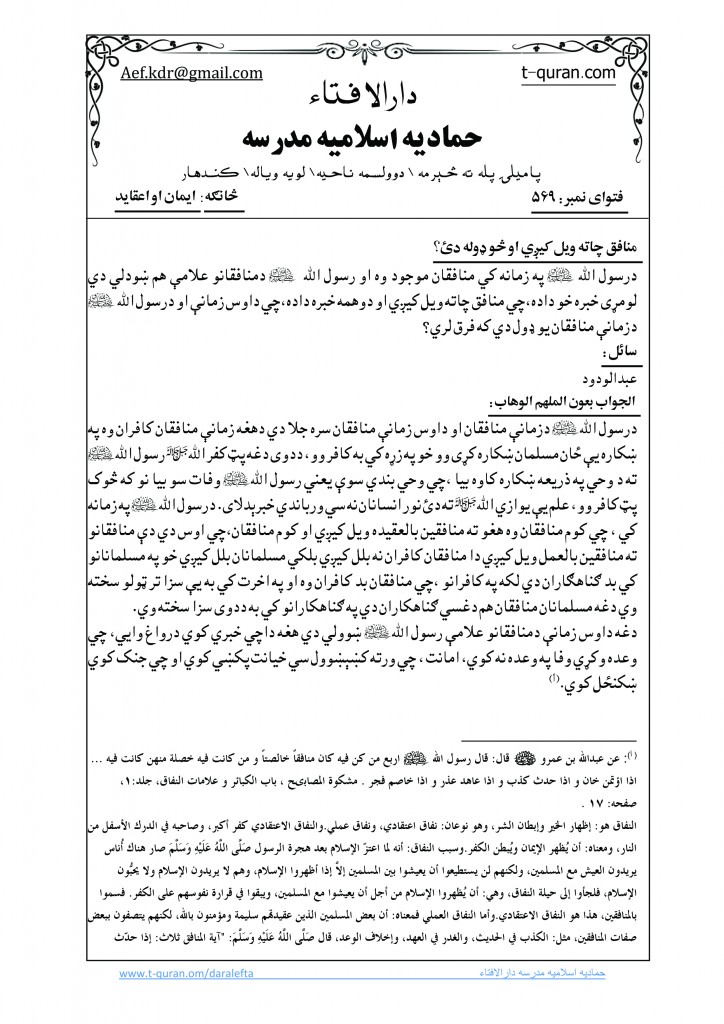 Aef.kdr@gmail.com
t-quran.com
دارالافتاء
حماديه اسلاميه مدرسه
پاميلۍ پله ته څېرمه \ دوولسمه ناحيه\ لويه وياله\ کندهار
فتوای نمبر: ۵۶۹
څانګه: ايمان او اعقايد
منافق چاته ويل کيږي او څو ډوله دئ؟
درسول الله ﷺ په زمانه کي منافقان موجود وه او رسول الله ﷺ دمنافقانو علامې هم ښودلي دي
لومړی خبره خو داده، چي منافق چاته ويل کيږي او دوهمه خبره داده، چي داوس زمانې او درسول الله ﷺ
دزمانې منافقان يو ډول دي که فرق لري؟
سائل:
عبدالودود
الجواب بعون الملهم الوهاب:
درسول الله ﷺ دزمانې منافقان او داوس زمانې منافقان سره جلا دي دهغه زمانې منافقان کافران وه په
ښکاره يې ځان مسلمان ښکاره کړی وو خو په زړه کي به کافر وو، ددوی دغه پټ کفر الله ﷻ رسول الله ﷺ
ته د وحي په ذريعه ښکاره کاوه بيا، چي وحي بندي سوې يعني رسول الله ﷺ وفات سو بيا نو که څوک
پټ کافر وو، علم يې يوازي الله ﷻ ته دئ نور انسانان نه سي ور باندي خبرېدلای. درسول الله ﷺ په زمانه
کي، چي کوم منافقان وه هغو ته منافقين بالعقيده ويل کيږي او کوم منافقان، چي اوس دي دې منافقانو
ته منافقين بالعمل ويل کيږي دا منافقان کافران نه بلل کيږي بلکي مسلمانان بلل کيږي خو په مسلمانانو
کي بد ګناهګاران دي لکه په کافرانو، چي منافقان بد کافران وه او په اخرت کي به يې سزا تر ټولو سخته
وي دغه مسلمانان منافقان هم دغسي ګناهکاران دي په ګناهکارانو کي به ددوی سزا سخته وي.
دغه داوس زمانې دمنافقانو علامې رسول الله ﷺ ښوولي دي هغه داچي خبري کوي درواغ وايي، چي
وعده وکړي وفا په وعده نه کوي، امانت، چي ورته کښېښوول سي خيانت پکښي کوي او چي جنګ کوي
ښکنځل کوي.(أ)
(أ): عن عبدالله بن عمرو ﷺ قال: قال رسول الله ﷺ اربع من كن فيه كان منافقاً خالصتاً و من كانت فيه خصلة منهن كانت فيه ...
اذا اؤتمن خان و اذا حدث كذب و اذا عاهد عذر و اذا خاصم فجر. مشكوة المصابیح، باب الكبائر و علامات النفاق، جلد:۱،
صفحه: ۱۷ .
النفاق هو: إظهار الخير وإبطان الشر، وهو نوعان: نفاق اعتقادي، ونفاق عملي.والنفاق الاعتقادي كفر أكبر، وصاحبه في الدرك الأسفل من
النار، ومعناه: أن يُظهر الإيمان ويُبطن الكفر.وسبب النفاق: أنه لما اعتزّ الإسلام بعد هجرة الرسول صَلَّى اللَّهُ عَلَيْهِ وَسَلَّمَ صار هناك أُناس
يريدون العيش مع المسلمين، ولكنهم لن يستطيعوا أن يعيشوا بين المسلمين إلاَّ إذا أظهروا الإسلام، وهم لا يريدون الإسلام ولا يحبُّون
الإسلام، فلجأوا إلى حيلة النفاق، وهي: أن يُظهروا الإسلام من أجل أن يعيشوا مع المسلمين، ويبقوا في قرارة نفوسهم على الكفر. فسموا
بالمنافقين، هذا هو النفاق الاعتقادي.وأما النفاق العملي فمعناه: أن بعض المسلمين الذين عقيدتهم سليمة ومؤمنون بالله، لكنهم يتصفون ببعض
صفات المنافقين، مثل: الكذب في الحديث، والغدر في العهد، وإخلاف الوعد، قال صَلَّى اللَّهُ عَلَيْهِ وَسَلَّمَ: "آية المنافق ثلاث: إذا حدّث
حماديه اسلاميه مدرسه دارالافتاء
www.t-quran.om/daralefta